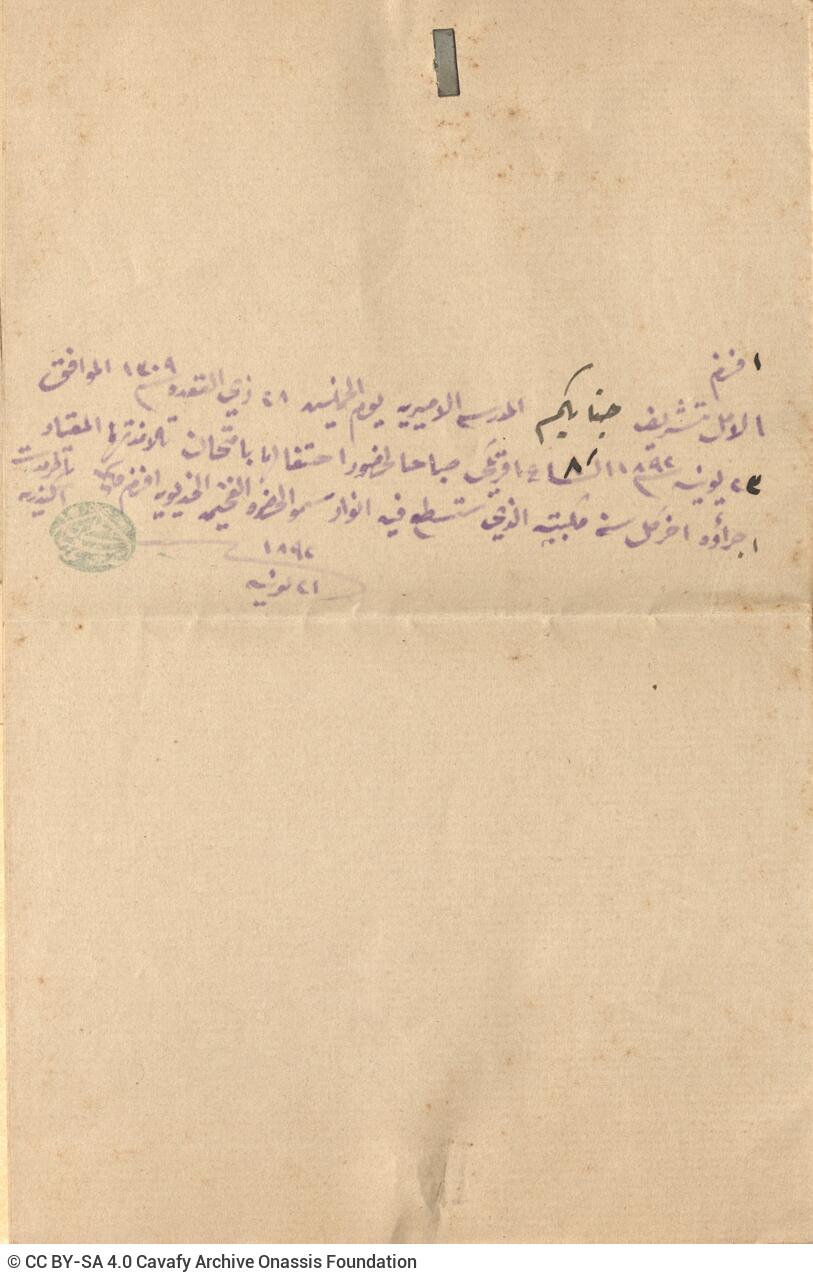 افندم
الامل تشريف جنابكم المدرسه الاميريه يوم الخميس ٢٨ ذي القعده سنة ١٣٠٩ الموافق
٢٣ يونيه سنة ١٨٩٢ الساعة ٨ افرنكى صباحا لحضور احتفالها بامتحان تلامذتها المعتاد
اجراؤه اخر كل سنه مكتبيه الذي ستسطع فيه انوار سمو الحضره الفخيمه الخديويه افندم
١٨٩٢
٢١ يونيه
© CC BY-SA 4.0 Cavafy Archive Onassis Foundation